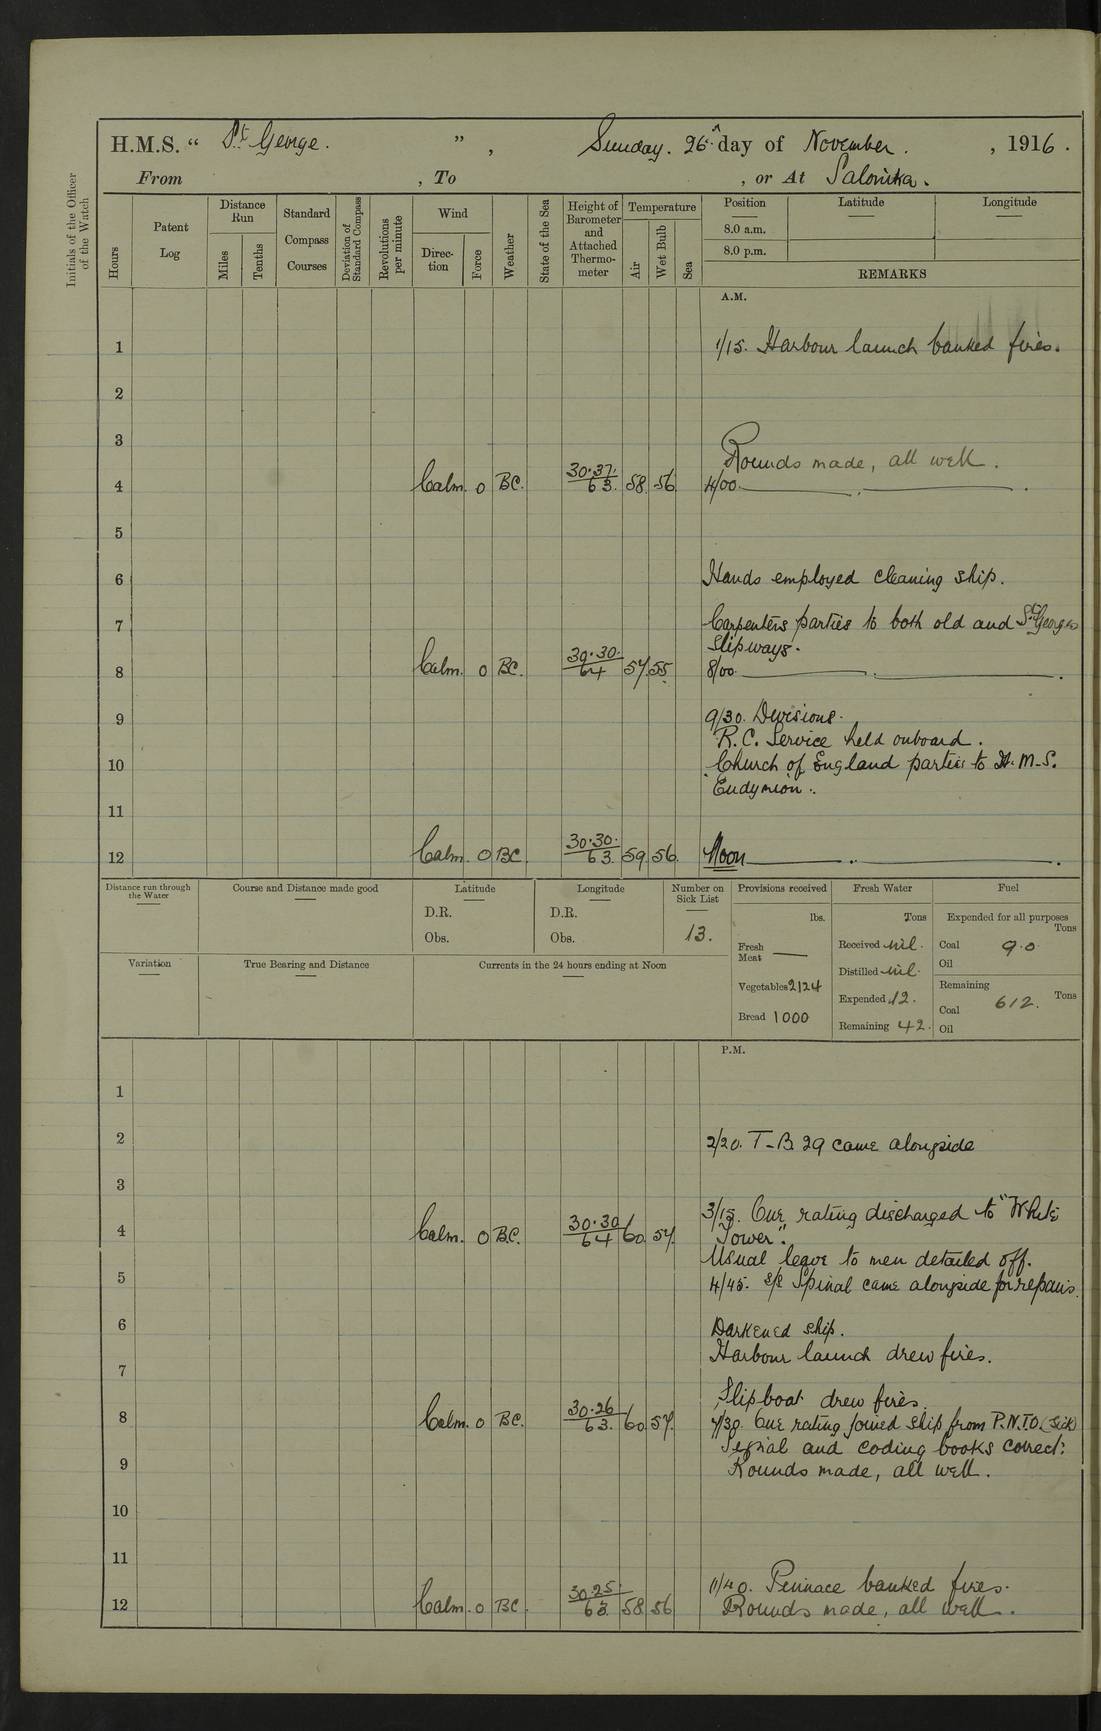 H.M.S. “ St. George. ” , Sunday. 26th day of November. , 1916.
From , To , or At Salonika.
Initials of the Officer of the Watch
Hours
Patent Log
Distance Run
Miles
Tenths
Standard Compass Courses
Deviation of Standard Compass
Revolutions per minute
Wind
Direction
Force
Weather
State of the Sea
Height of Barometer and Attached Thermometer
Temperature
Air
Wet Bulb
Sea
Position Latitude Longitude
8.0 a.m.
8.0 p.m.
REMARKS
A.M.
1 1/15. Harbour launch banked fires.
2
3
Rounds made, all well.
4 Calm. 0 BC. 30.37. 63. 58. 56 4/00.
5
6 Hands employed cleaning ship.
7 Carpenters parties to both old and St Georges
Slipways.
8 Calm. 0 BC. 30.30. 64 57. 55. 8/00.
9 9/30. Divisions.
R.C. Service held onboard.
10 Church of England parties to H.M.S.
Endymion.
11
12 Calm. 0 BC 30.30. 63. 59. 56. Noon
Distance run through the Water
Course and Distance made good
Latitude
D.R.
Obs.
Longitude
D.R.
Obs.
Number on Sick List
13.
Provisions received
lbs.
Fresh Meat —
Vegetables 2124
Bread 1000
Fresh Water
Tons
Received nil.
Distilled nil.
Expended 12.
Remaining 42.
Fuel
Expended for all purposes
Tons
Coal 9.0
Oil
Remaining
Tons
Coal 612.
Oil
Variation
True Bearing and Distance
Currents in the 24 hours ending at Noon
P.M.
1
2 2/20. T-B. 29 came alongside
3
3/15. One rating discharged to "White
4 Calm. 0 B.C. 30.30 64 60. 57. Tower".
Usual leave to men detailed off.
5 4/45. S/S Spinal came alongside for repairs.
6 Darkened ship.
Harbour launch drew fires.
7
Slipboat drew fires.
8 Calm. 0 BC. 30.26 63. 60. 57. 7/30. One rating joined ship from P.N.T.O. (sick)
Signal and coding books correct:
9 Rounds made, all well.
10
11
11/40. Pinnace banked fires.
12 Calm. 0 BC. 30.25. 63. 58. 56 Rounds made, all well.